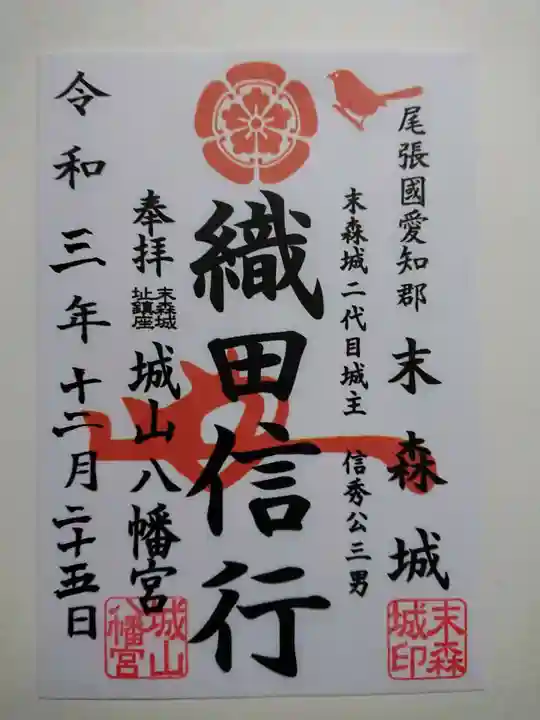 尾張國愛知郡 末森城
末森城二代目城主 信秀公三男
織田信行
奉拝 末森城址鎮座 城山八幡宮
令和三年十二月二十五日
末森城印
城山八幡宮